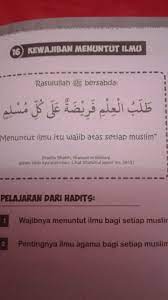 16 KEWAJIBAN MENUNTUT ILMU
Rasulullah ﷺ bersabda:
طَلَبُ الْعِلْمِ فَرِيْضَةٌ عَلَى كُلِّ مُسْلِمٍ
"Menuntut ilmu itu wajib atas setiap muslim"
PELAJARAN DARI HADITS:
1 Wajibnya menuntut ilmu bagi setiap muslim
2 Pentingnya ilmu agama bagi setiap muslim